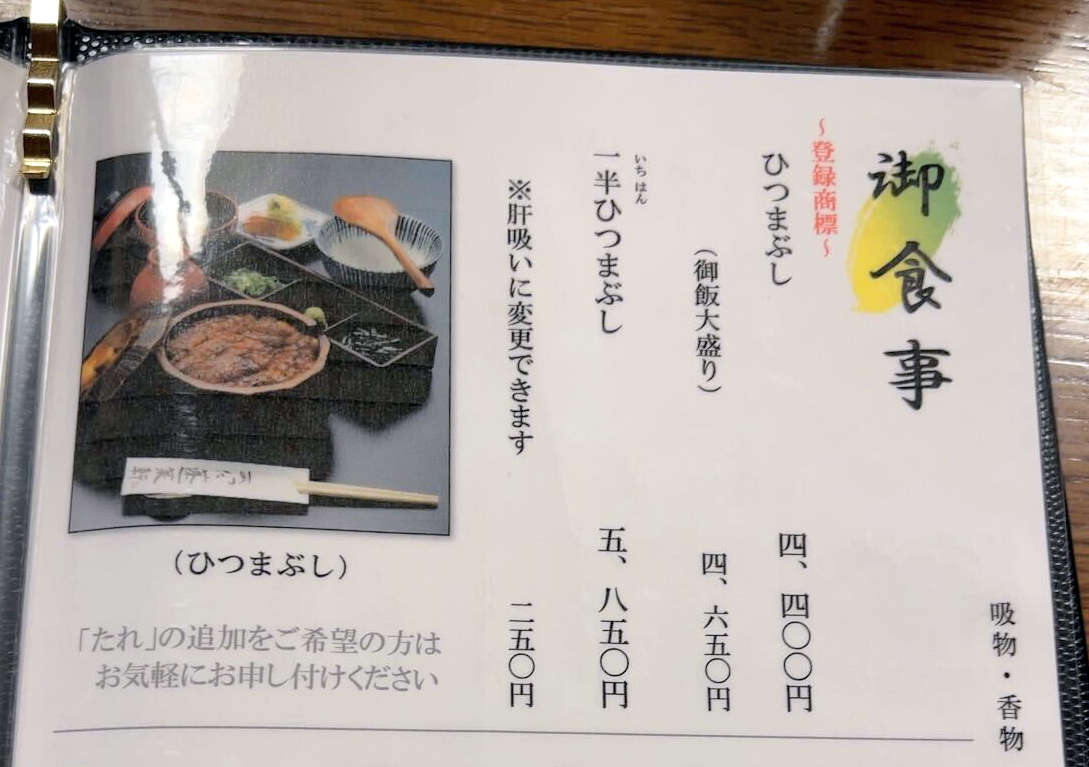 御食事
吸物・香物
〜登録商標〜
ひつまぶし 四、四〇〇円
(御飯大盛り) 四、六五〇円
いちはん
一半ひつまぶし 五、八五〇円
※肝吸いに変更できます 二五〇円
(ひつまぶし)
「たれ」の追加をご希望の方は
お気軽にお申し付けください